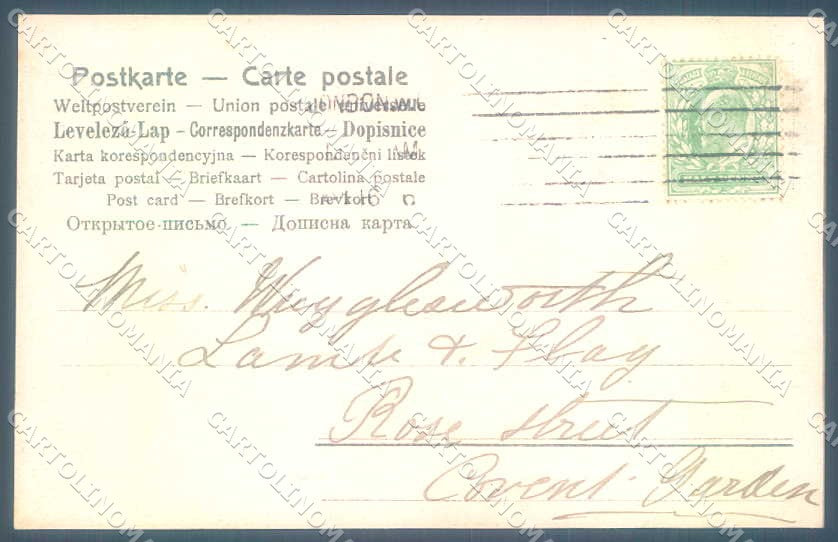 Postkarte — Carte postale
Weltpostverein — Union postale universelle
Levelező-Lap – Correspondenzkarte – Dopisnice
Karta korespondencyjna — Korespondenční listek
Tarjeta postal — Briefkaart — Cartolina postale
Post card — Brefkort — Brevkort
Открытое письмо — Дописна карта
LONDON
Miss.
Lamb & Flag
Rose Street
Covent Garden
CARTOLINOMANIA